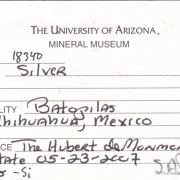 THE UNIVERSITY OF ARIZONA
MINERAL MUSEUM
18340
Silver
LITY Batopilas
Chihuahua, Mexico
CE The Hubert de Monmon
tate 05-23-2007
-Si